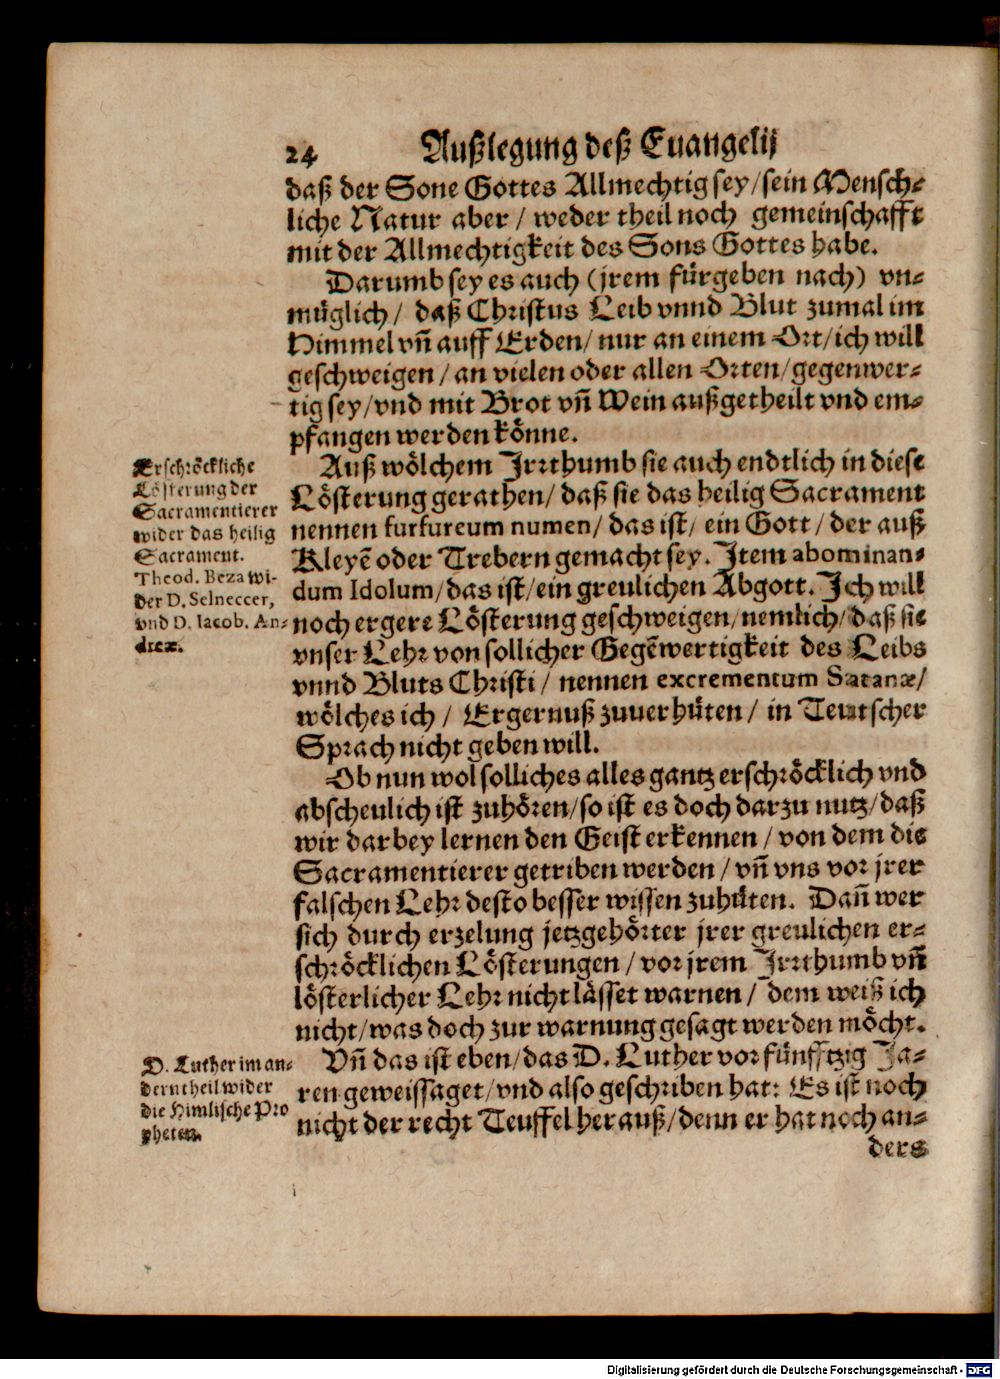 24 Außlegung deß Euangelij
daß der Sone Gottes Allmechtig sey/sein Mensch-
liche Natur aber / weder theil noch gemeinschafft
mit der Allmechtigkeit des Sons Gottes habe.
Darumb sey es auch (jrem fürgeben nach) vn-
müglich / daß Christus Leib vnnd Blut zumal im
Himmel vn̄ auff Erden/ nur an einem Ort/ich will
geschweigen / an vielen oder allen Orten/gegenwer-
tig sey/vnd mit Brot vn̄ Wein außgetheilt vnd em-
pfangen werden könne.
Auß wölchem Jrrthumb sie auch endtlich in diese
Lösterung gerathen/ daß sie das heilig Sacrament
nennen furfureum numen/ das ist/ ein Gott / der auß
Kleyē oder Trebern gemacht sey. Jtem abominan-
dum Idolum/das ist/ein greulichen Abgott. Jch will
noch ergere Lösterung geschweigen/nemlich/daß sie
vnser Lehr von sollicher Gegēwertigkeit des Leibs
vnnd Bluts Christi / nennen excrementum Satanæ/
wölches ich / Ergernuß zuuerhüten / in Teutscher
Sprach nicht geben will.
Erschröckliche
Lösterung der
Sacramentierer
wider das heilig
Sacrament.
Theod. Beza wi-
der D. Selneccer,
vnd D. Iacob. An-
dreæ.
Ob nun wol solliches alles gantz erschröcklich vnd
abscheulich ist zuhören/so ist es doch darzu nutz/daß
wir darbey lernen den Geist erkennen / von dem die
Sacramentierer getriben werden / vn̄ vns vor jrer
falschen Lehr desto besser wissen zuhüten. Dan̄ wer
sich durch erzelung jetzgehörter jrer greulichen er-
schröcklichen Lösterungen / vor jrem Jrrthumb vn̄
lösterlicher Lehr nicht lässet warnen / dem weiß ich
nicht/was doch zur warnung gesagt werden möcht.
Vn̄ das ist eben/das D. Luther vor fünfftzig Ja-
ren geweissaget/vnd also geschriben hat: Es ist noch
nicht der recht Teuffel herauß/denn er hat noch an-
D. Luther im an-
dern theil wider
die Himlische Pro
pheten.
ders
Digitalisierung gefördert durch die Deutsche Forschungsgemeinschaft - DFG